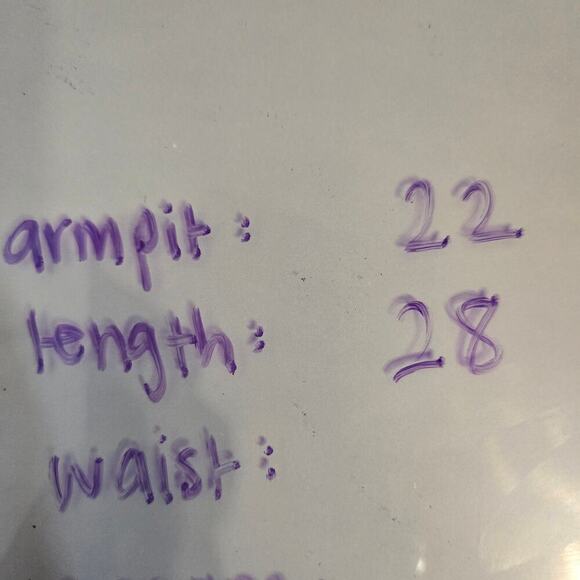 armpit: 22
length: 28
waist: